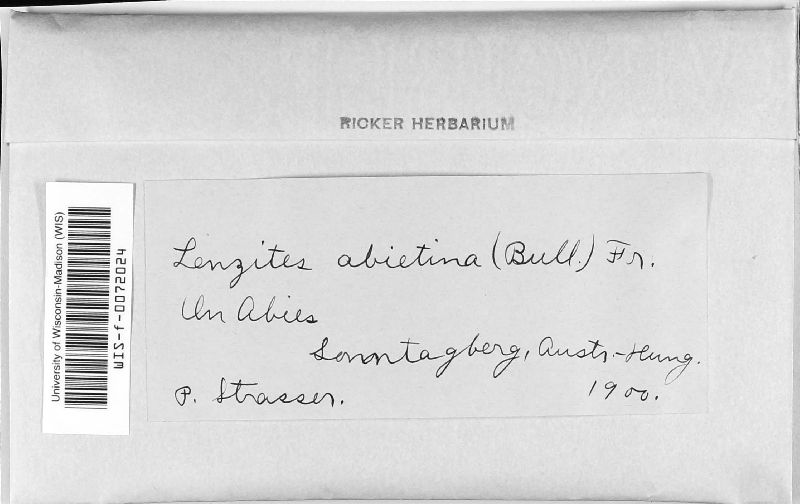 RICKER HERBARIUM
University of Wisconsin-Madison (WIS)
WIS-f-0072024
Lenzites abietina (Bull.) Fr.
On Abies
Sonntagberg, Austr.-Hung.
P. Strasser. 1900.